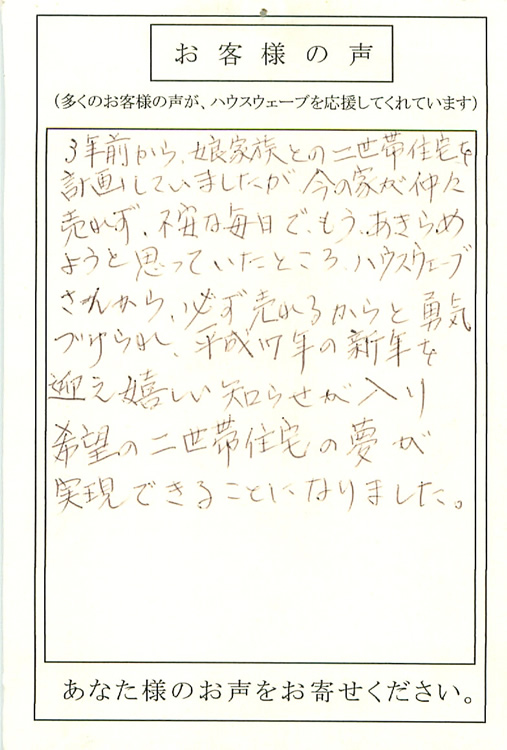 お客様の声
（多くのお客様の声が、ハウスウェーブを応援してくれています）
3年前から、娘家族との二世帯住宅を
計画していましたが今の家が仲々
売れず、不安な毎日で、もう、あきらめ
ようと思っていたところ、ハウスウェーブ
さんから、必ず売れるからと勇気
づけられ、平成17年の新年を
迎え嬉しい知らせが入り
希望の二世帯住宅の夢が
実現できることになりました。
あなた様のお声をお寄せください。